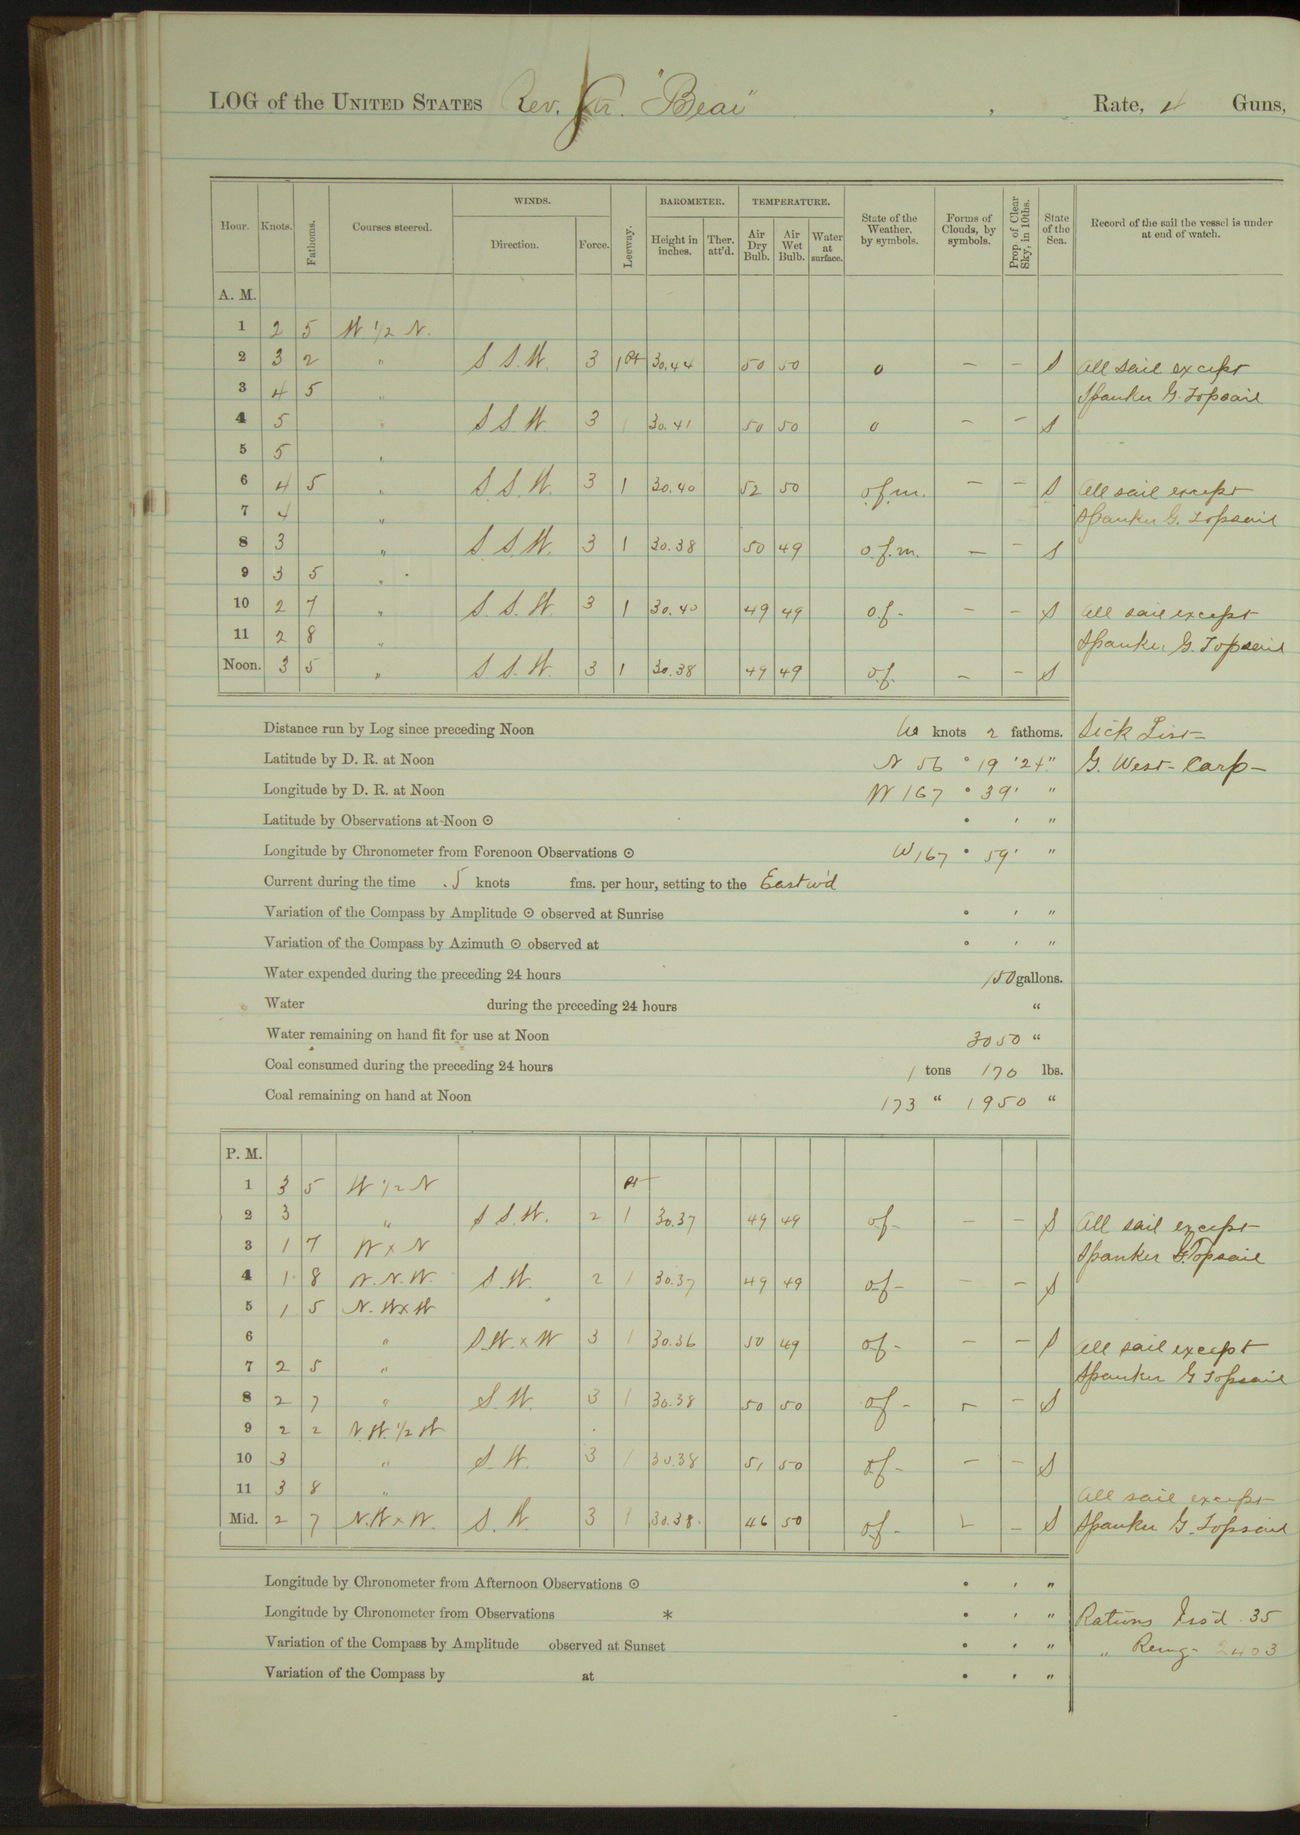 LOG of the UNITED STATES Rev. Str. "Bear" , Rate, 4 Guns,
Hour. Knots. Fathoms. Courses steered. WINDS. Direction. Force. Leeway. BAROMETER. Height in inches. Ther. att'd. TEMPERATURE. Air Dry Bulb. Air Wet Bulb. Water at surface. State of the Weather, by symbols. Forms of Clouds, by symbols. Prop. of Clear Sky, in 10ths. State of the Sea. Record of the sail the vessel is under at end of watch.
A. M.
1 2 5 W 1/2 N.
2 3 2 " S S. W. 3 1 pt 30.44 50 50 o — — S All sail except
3 4 5 " Spanker G. Topsail
4 5 " S S. W 3 1 30.41 50 50 o — — S
5 5 "
6 4 5 " S. S. W. 3 1 30.40 52 50 o.f.m. — — S All sail except
7 4 " Spanker G. Topsail
8 3 " S S. W. 3 1 30.38 50 49 o.f.m. — — S
9 3 5 "
10 2 7 " S. S. W. 3 1 30.40 49 49 o.f. — — S All sail except
11 2 8 " Spanker G. Topsail
Noon. 3 5 " S S. W. 3 1 30.38 49 49 o.f. — — S
Distance run by Log since preceding Noon knots 2 fathoms. Sick List—
Latitude by D. R. at Noon N 56 ° 19 ' 24 " G. West — Carp —
Longitude by D. R. at Noon W 167 ° 39 ' "
Latitude by Observations at Noon ☉ ° ' "
Longitude by Chronometer from Forenoon Observations ☉ W 167 ° 59 ' "
Current during the time .5 knots fms. per hour, setting to the Eastw'd
Variation of the Compass by Amplitude ☉ observed at Sunrise ° ' "
Variation of the Compass by Azimuth ☉ observed at ° ' "
Water expended during the preceding 24 hours 150 gallons.
Water during the preceding 24 hours "
Water remaining on hand fit for use at Noon 3050 "
Coal consumed during the preceding 24 hours 1 tons 170 lbs.
Coal remaining on hand at Noon 173 " 1950 "
P. M.
1 3 5 W 1/2 N pt
2 3 " S S. W. 2 1 30.37 49 49 o.f. — — S All sail except
3 1 7 W x N Spanker G. Topsail
4 1 8 W. N. W. S. W. 2 1 30.37 49 49 o.f. — — S
5 1 5 N. W x W
6 " S. W. x W 3 1 30.36 50 49 o.f. — — S All sail except
7 2 5 " Spanker G Topsail
8 2 7 " S. W. 3 1 30.38 50 50 o.f. — — S
9 2 2 N. W. 1/2 W
10 3 " S. W. 3 1 30.38 51 50 o.f. — — S
11 3 8 " All sail except
Mid. 2 7 N. W x W. S. W. 3 1 30.38 46 50 o.f. — — S Spanker G. Topsail
Longitude by Chronometer from Afternoon Observations ☉ ° ' "
Longitude by Chronometer from Observations * ° ' " Rations Iss'd. 35
Variation of the Compass by Amplitude observed at Sunset ° ' " " Remg. 2403
Variation of the Compass by at ° ' "